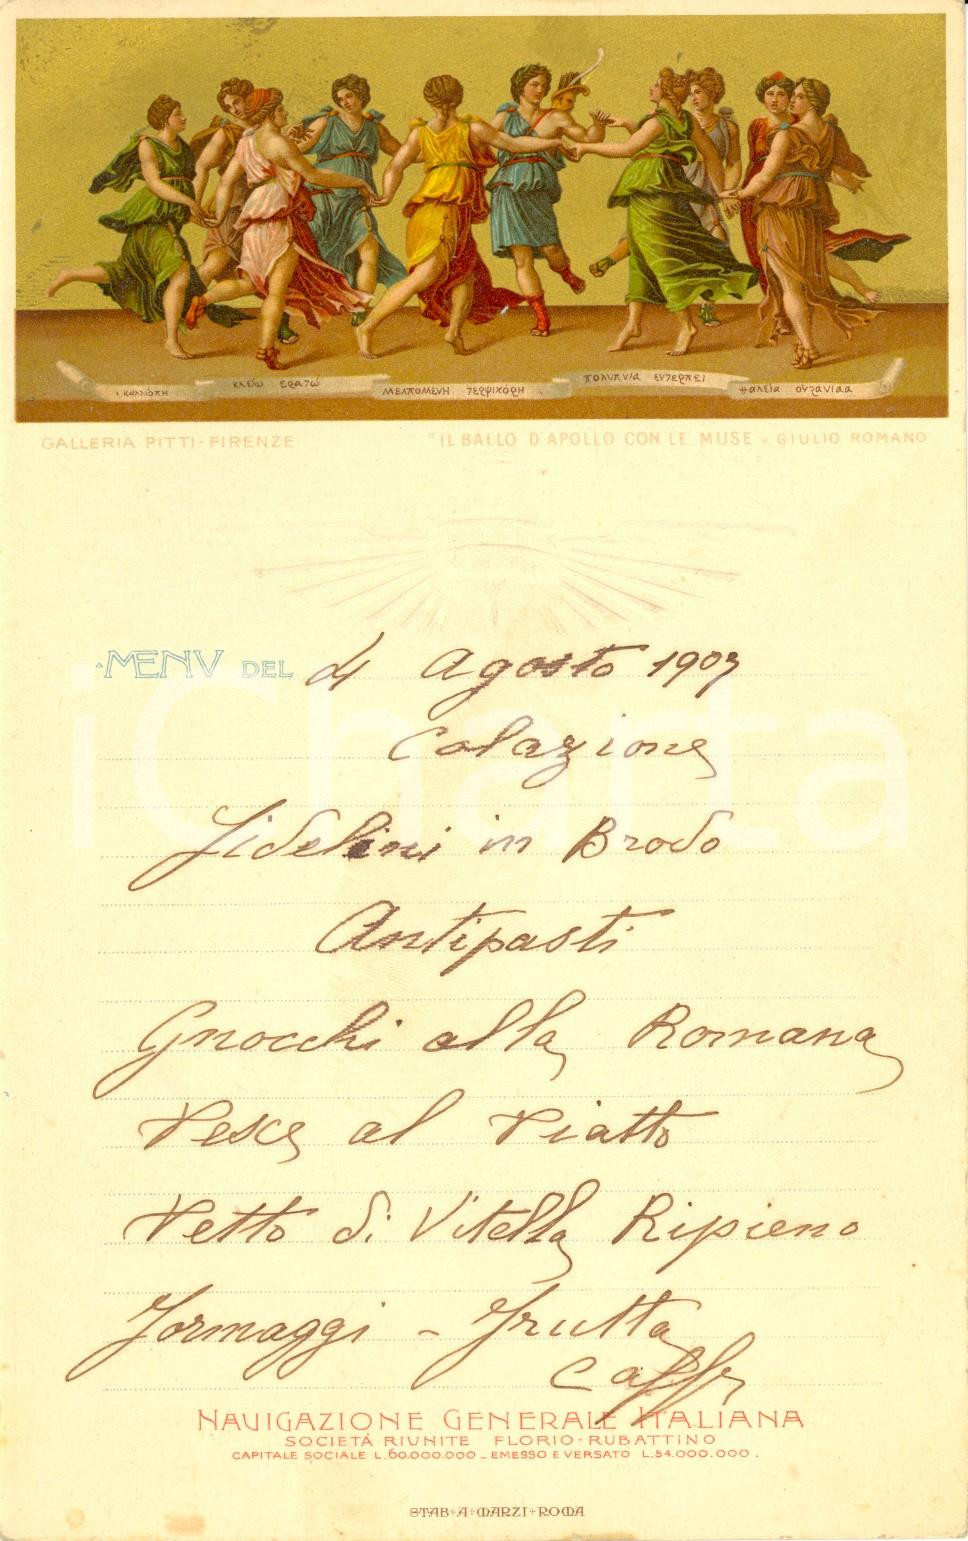 ΚΑΛΛΙΟΠΗ ΚΛΕΙΩ ΕΡΑΤΩ ΜΕΛΠΟΜΕΝΗ ΤΕΡΨΙΧΟΡΗ ΠΟΛΥΜΝΙΑ ΕΥΤΕΡΠΕΙ ΘΑΛΕΙΑ ΟΥΡΑΝΙΑΑ
GALLERIA PITTI-FIRENZE "IL BALLO D'APOLLO CON LE MUSE" GIULIO ROMANO
MENV DEL 4 Agosto 1907
Colazione
Fidelini in Brodo
Antipasti
Gnocchi alla Romana
Pesce al Piatto
Petto di Vitella Ripieno
Formaggi - Frutta
Caffe
NAVIGAZIONE GENERALE ITALIANA
SOCIETÀ RIUNITE FLORIO-RUBATTINO
CAPITALE SOCIALE L.60.000.000_EMESSO E VERSATO L.54.000.000.
STAB+A+MARZI+ROMA
iCharta